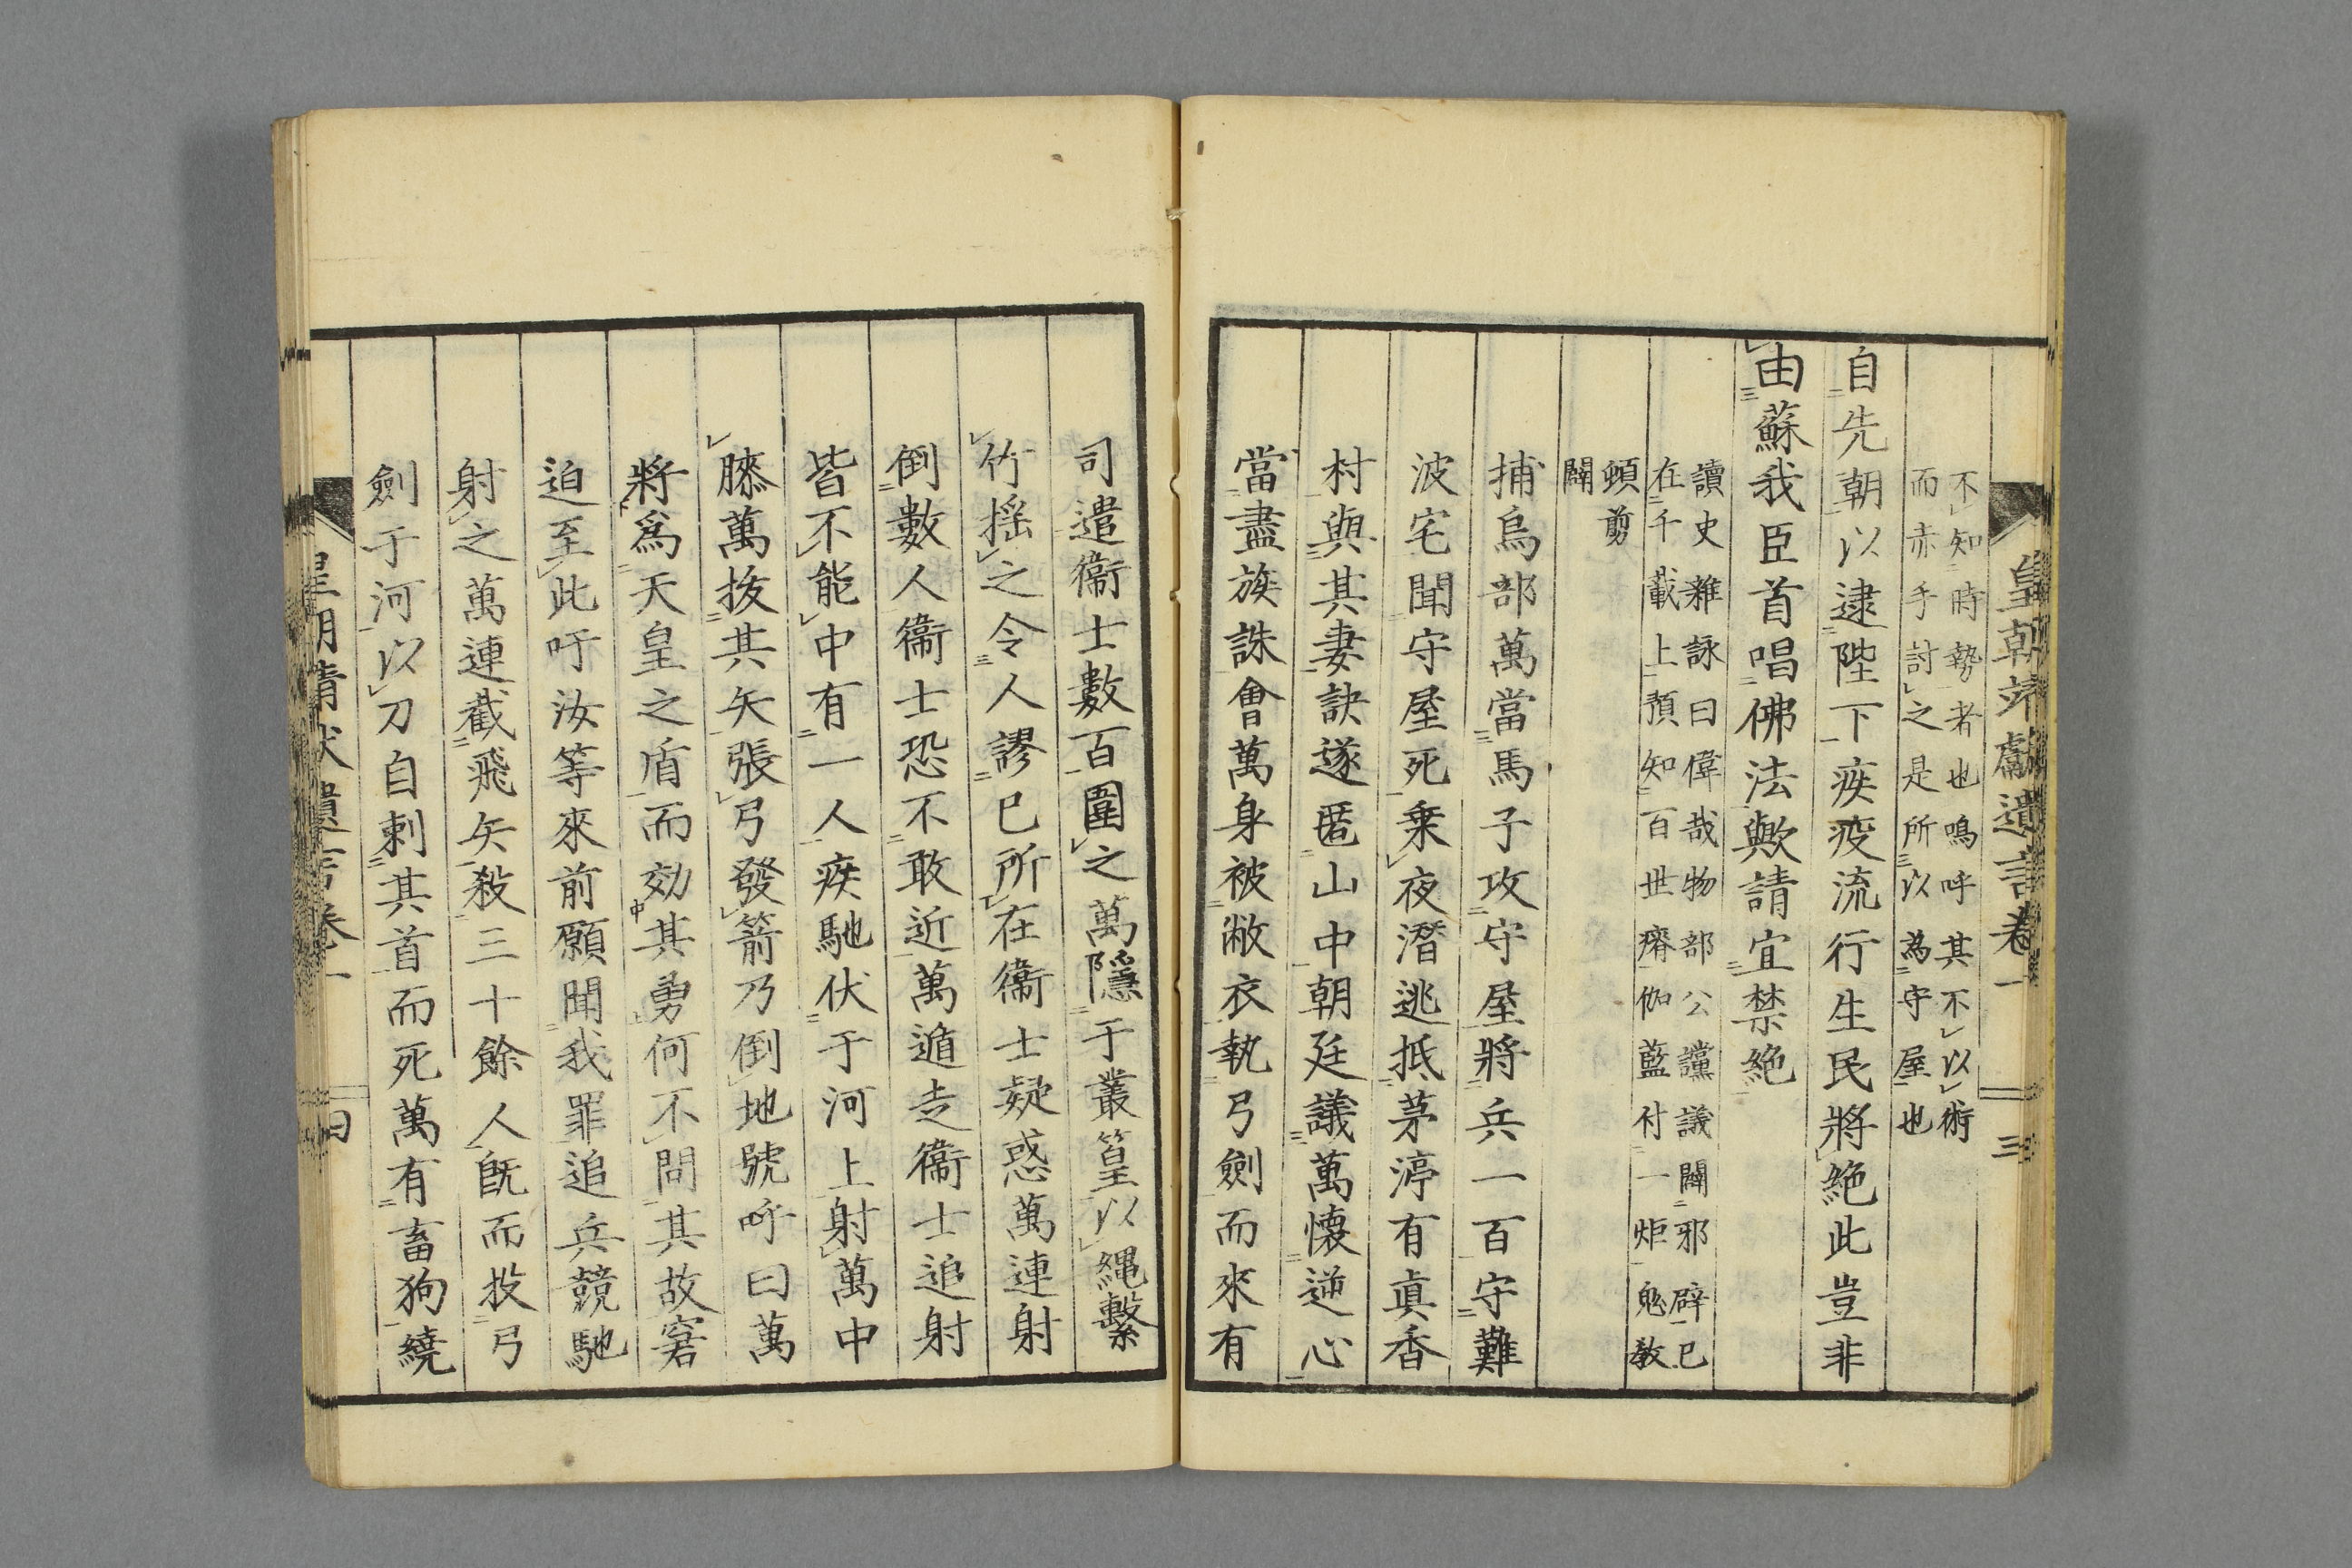 皇朝靖獻遺言卷一 三
不知時勢者也嗚呼其不以術
而赤手討之是所以為守屋也
自先朝以逮陛下疾疫流行生民將絶此豈非
由蘇我臣首唱佛法歟請宜禁絶
讀史雜詠曰偉哉物部公讜議闢邪辟已
在千載上預知百世瘠伽藍付一炬鬼教
頓剪
闢
捕鳥部萬當馬子攻守屋將兵一百守難
波宅聞守屋死乗夜潛逃抵茅渟有真香
村與其妻訣遂匿山中朝廷議萬懐逆心
當盡族誅會萬身被敝衣執弓劍而來有
司遣衞士數百圍之萬隱于叢篁以縄繫
竹揺之令人謬己所在衞士疑惑萬連射
倒數人衞士恐不敢近萬遁走衞士追射
皆不能中有一人疾馳伏于河上射萬中
膝萬拔其矢張弓發箭乃倒地號呼曰萬
將爲天皇之盾而効其勇何不問其故窘
迫至此吁汝等來前願聞我罪追兵競馳
射之萬連截飛矢殺三十餘人既而投弓
劍于河以刀自刺其首而死萬有畜狗繞